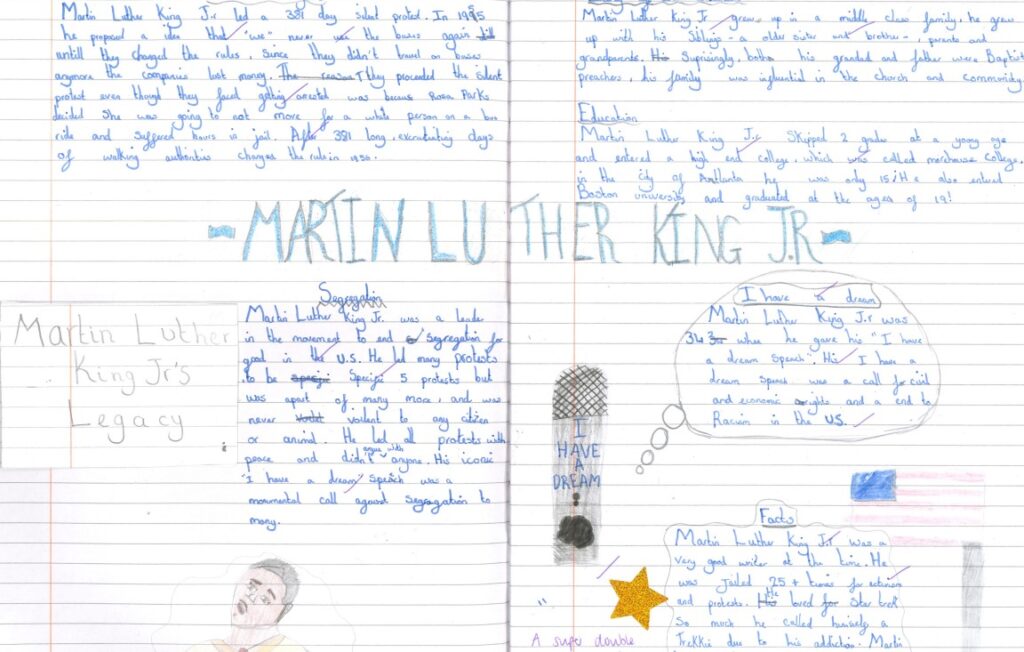 Martin Luther King J.r led a 381 day silent protest. In 1955
he proposd a idea that "we" never use the buses again
untill they changed the rules, since they didn't travel on buses
anymore the companies lost money. They proceeded the silent
protest even though they faced getting arrested was becaus Rosa Parks
decided she was going to not move for a white person on a bus
ride and suffered hours in jail. After 381 long, excrutiating days
of walking authorities changed the rules in 1956.
Martin Luther King Jr grew up in a middle class family, he grew
up with his siblings - a older sister and brother -, parents and
grandparents. Suprisingly, both his grandad and father were Baptist
preachers, his family was influential in the church and community
Education
Martin Luther King J.r skipped 2 grades at a young age
and entered a high end college, which was called morehouse college,
in the city of Antlanta he was only 15! He also entered
Boston university and graduated at the ages of 19!
-MARTIN LUTHER KING J.R-
Martin Luther
King Jr's
Legacy
Segregation
Martin Luther King Jr. was a leader
in the movement to end segregation for
good in the U.S. He led many protests
to be Specific 5 protests but
was apart of many more, and was
never voilent to any citizen
or animal. He led all protests with
peace and didn't argue with anyone. His iconic
"I have a dream" speach was a
monumental call against segregation to
many.
I have a dream
Martin Luther King J.r was
34 when he gave his "I have
a dream speech". His I have a
dream speach was a call for civil
and economic rights and a end to
Racism in the U.S.
I
HAVE
A
DREAM
Facts
Martin Luther King J.r was a
very good writer at the time. He
was jailed 25+ times for activism
and protests. He loved star trek
So much he called himself a
Trekkie due to his addiction. Martin
A super double